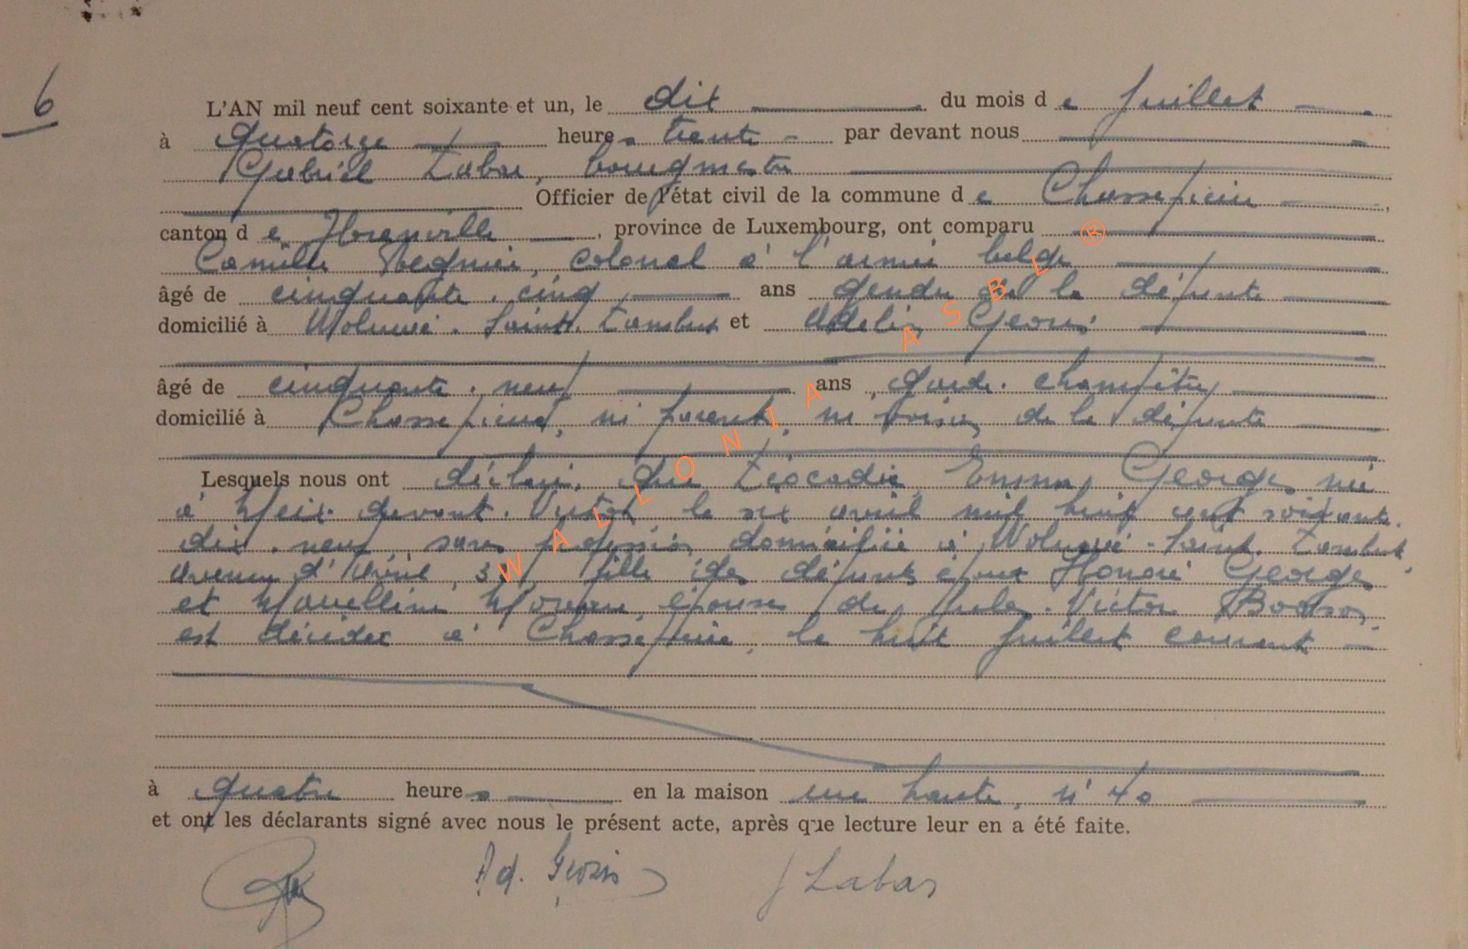 6
L'AN mil neuf cent soixante et un, le dix du mois d e juillet
à quatorze heure s trente par devant nous
Gabriel Labar, bourgmestre
Officier de l'état civil de la commune d e Chassepierre
canton d e Florenville, province de Luxembourg, ont comparu
Camille Regnier, colonel à l'armée belge
âgé de cinquante-cinq ans gendre de la défunte
domicilié à Woluwé-Saint-Lambert et Adelin Georis
âgé de cinquante-neuf ans garde-champêtre
domicilié à Chassepierre, ni parent, ni voisin de la défunte
Lesquels nous ont déclaré que Léocadie, Emma, Georges née
à Meix-devant-Virton le six avril mil huit cent soixante-
dix-neuf, sans profession domiciliée à Woluwé-Saint-Lambert,
avenue d' fille des défunts époux Honoré Georges
et Moreau, épouse de Jules-Victor
est décédée à Chassepierre, le huit juillet courant
à quatre heure s en la maison rue haute, n° 40
et ont les déclarants signé avec nous le présent acte, après que lecture leur en a été faite.
Ad. Georis G Labar
WALLONIA ASBL ®